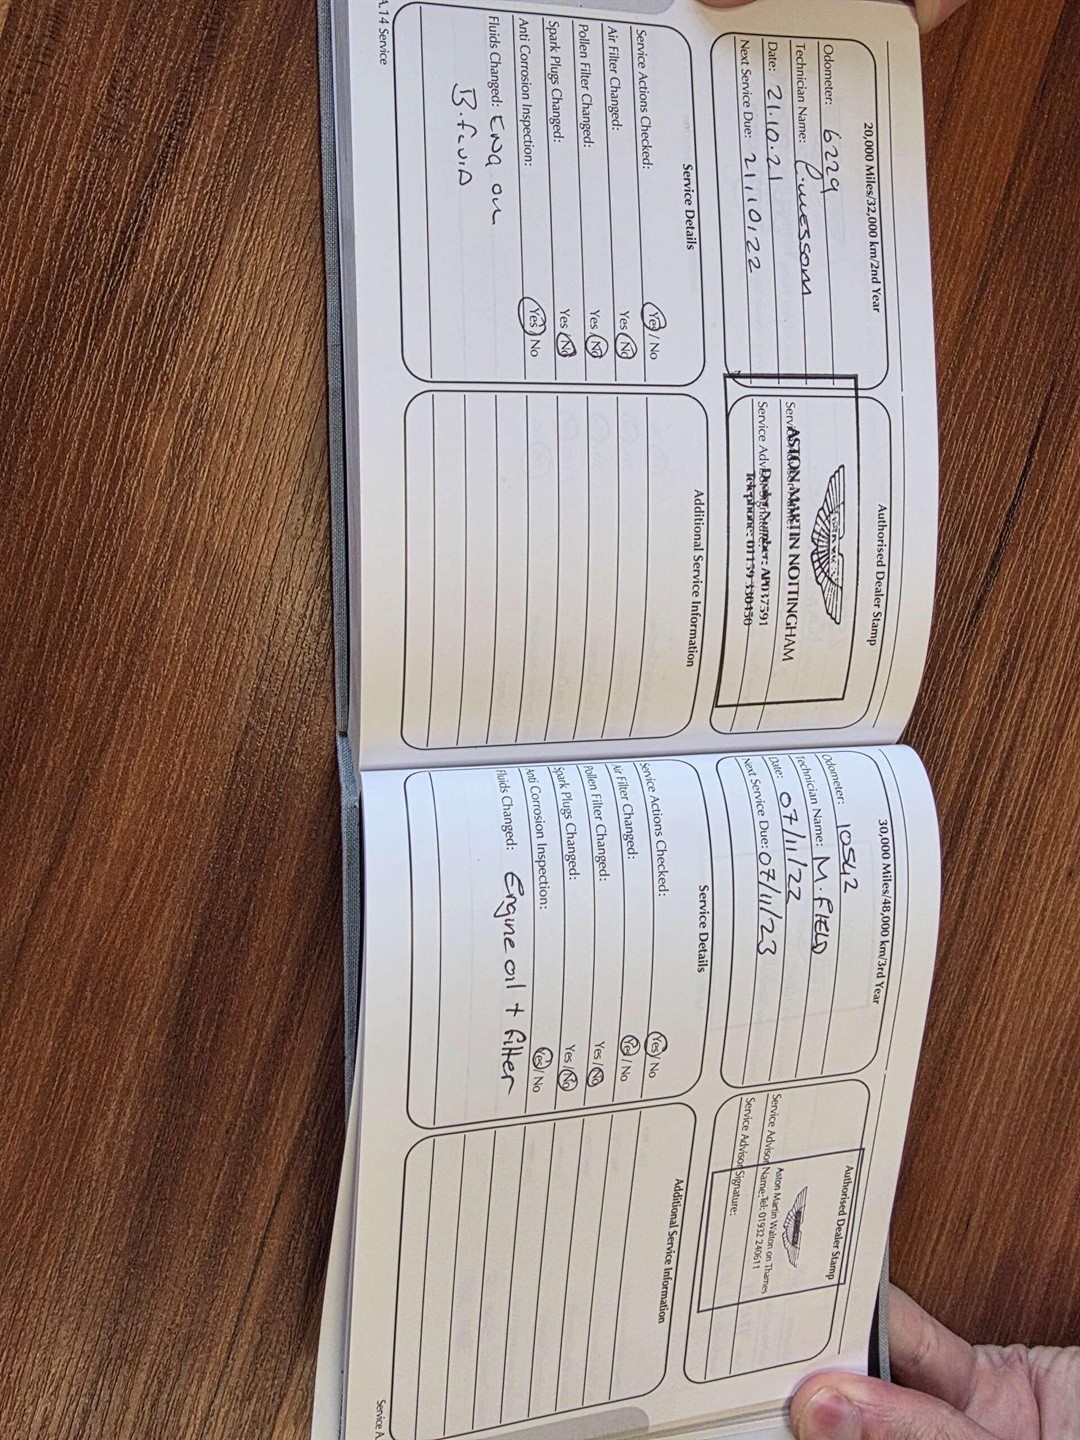 20,000 Miles/32,000 km/2nd Year
Odometer: 6229
Technician Name:
Date: 21.10.21
Next Service Due: 21,10,22
Authorised Dealer Stamp
ASTON MARTIN NOTTINGHAM
Dealer Number: AP037591
Telephone: 01159 330450
Service Advisor Signature:
Service Details
Service Actions Checked: Yes / No
Air Filter Changed: Yes / No
Pollen Filter Changed: Yes / No
Spark Plugs Changed: Yes / No
Anti Corrosion Inspection: Yes / No
Fluids Changed: ENG OIL
B.FLUID
Additional Service Information
A.14 Service
30,000 Miles/48,000 km/3rd Year
Odometer: 10542
Technician Name: M.FIELD
Date: 07/11/22
Next Service Due: 07/11/23
Authorised Dealer Stamp
Aston Martin Walton on Thames
Service Advisor Name: Tel: 01932 240611
Service Advisor Signature:
Service Details
Service Actions Checked: Yes / No
Air Filter Changed: Yes / No
Pollen Filter Changed: Yes / No
Spark Plugs Changed: Yes / No
Anti Corrosion Inspection: Yes / No
Fluids Changed: Engine oil + filter
Additional Service Information
Service A.